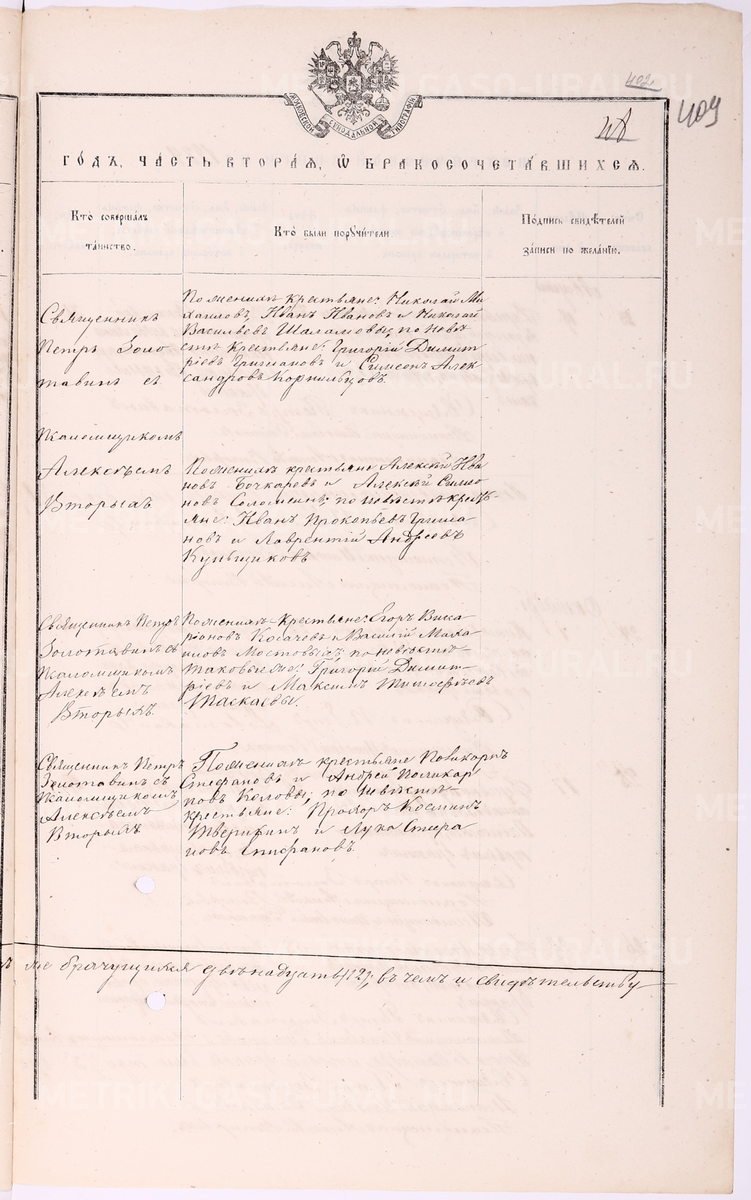 402
409
МОСКОВСКОЙ СѴНОДАЛЬНОЙ ТИПОГРАФІИ
ГОДЪ, ЧАСТЬ ВТОРАЯ, Ѡ БРАКОСОЧЕТАВШИХСЯ.
Кто совершалъ
таинство.
Кто были поручители.
Подпись свидѣтелей
записи по желанію.
Священникъ
Петръ Золо
тавинъ съ
псаломщикомъ
Алексѣемъ
Вторыхъ
По женихѣ крестьяне: Николай Ми
хаиловъ, Иванъ Ивановъ и Николай
Васильевъ Шаламовы; по невѣ
стѣ крестьяне: Григорій Димит
ріевъ и Симеонъ Алек
сандровъ Корнильцовъ.
По женихѣ крестьяне Алексѣй Ива
новъ Бочкаревъ и Алексѣй Симео
новъ Соломеинъ; по невѣстѣ крестья
яне: Иванъ Прокопьевъ Гриша
новъ и Лаврентій Андреевъ
Кунщиковъ
Священникъ Петръ
Золотавинъ съ
псаломщикомъ
Алексѣемъ
Вторыхъ.
По женихѣ крестьяне: Егоръ Висса
ріоновъ Косачевъ и Василій Миха
иловъ Мостовыхъ; по невѣстѣ
таковые же: Григорій Димит
ріевъ и Максимъ Тимофѣевъ
Таскаевы.
Священникъ Петръ
Золотавинъ съ
псаломщикомъ
Алексѣемъ
Вторыхъ
По женихѣ крестьяне Поликарпъ
Стефановъ и Андрей Поликар
повъ Коловы; по невѣстѣ
крестьяне: Прохоръ Косминъ
Тверитинъ и Лука Стефа
новъ Стефановъ.
же брачущихся двѣнадцать (12); въ чемъ и свидѣтельству
METRIKI.GASO-URAL.RU